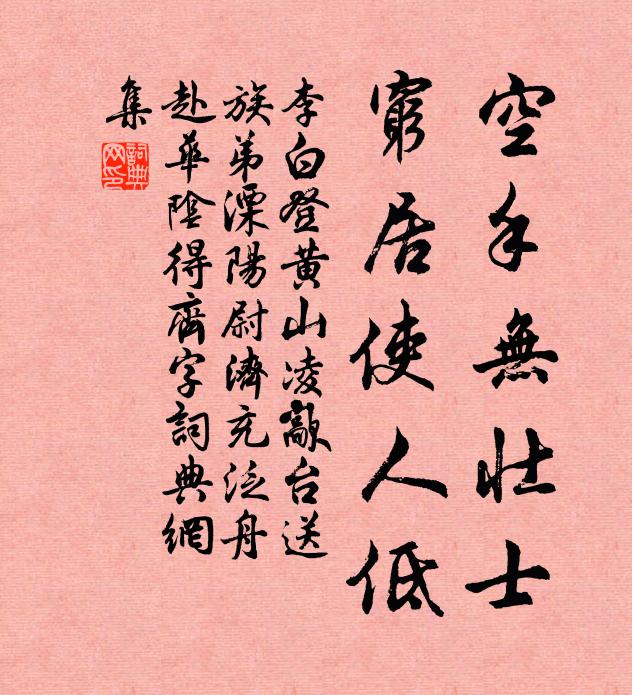 空手無壯士
窮居使人低
李白登黃山凌敲台送
族弟溧陽尉濟充泛舟
赴華陰得齊字詞典網
集
詞典網印